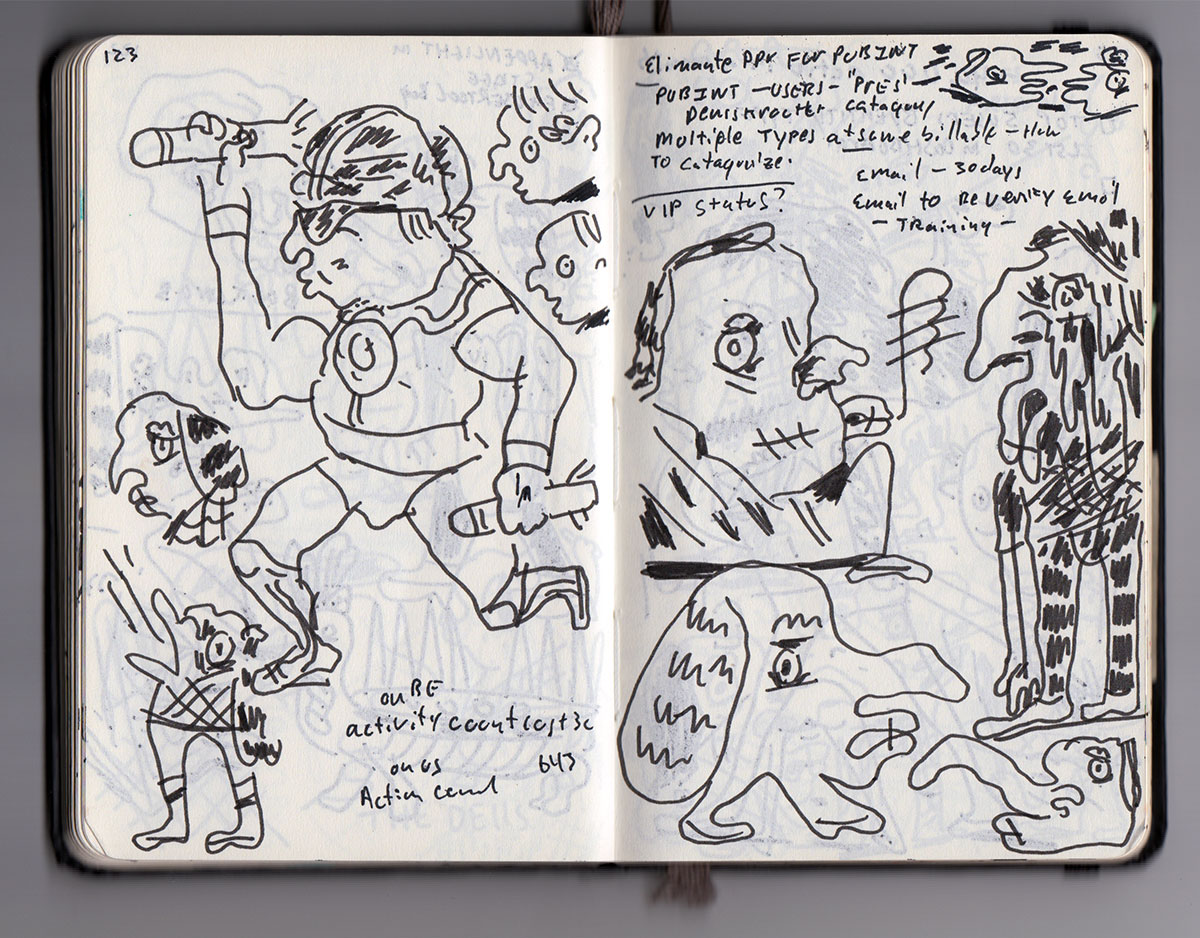 123
on BE
activity count cost 3c
on US 643
Action
Elimante PPR FOR PUBINT
PUBINT - USERS - "PRES"
catagory
Multiple Types at same billable - How
To catagorize.
email - 30 days
VIP Status?
Email to REVERIFY Email
- TRAINING -